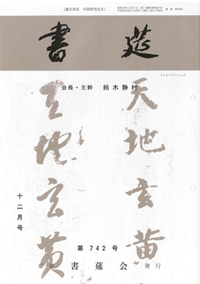 書莚
会長・主幹 鈴木静村
天地玄黄
天地玄黄
十二月号
第742号
書莚会 発行